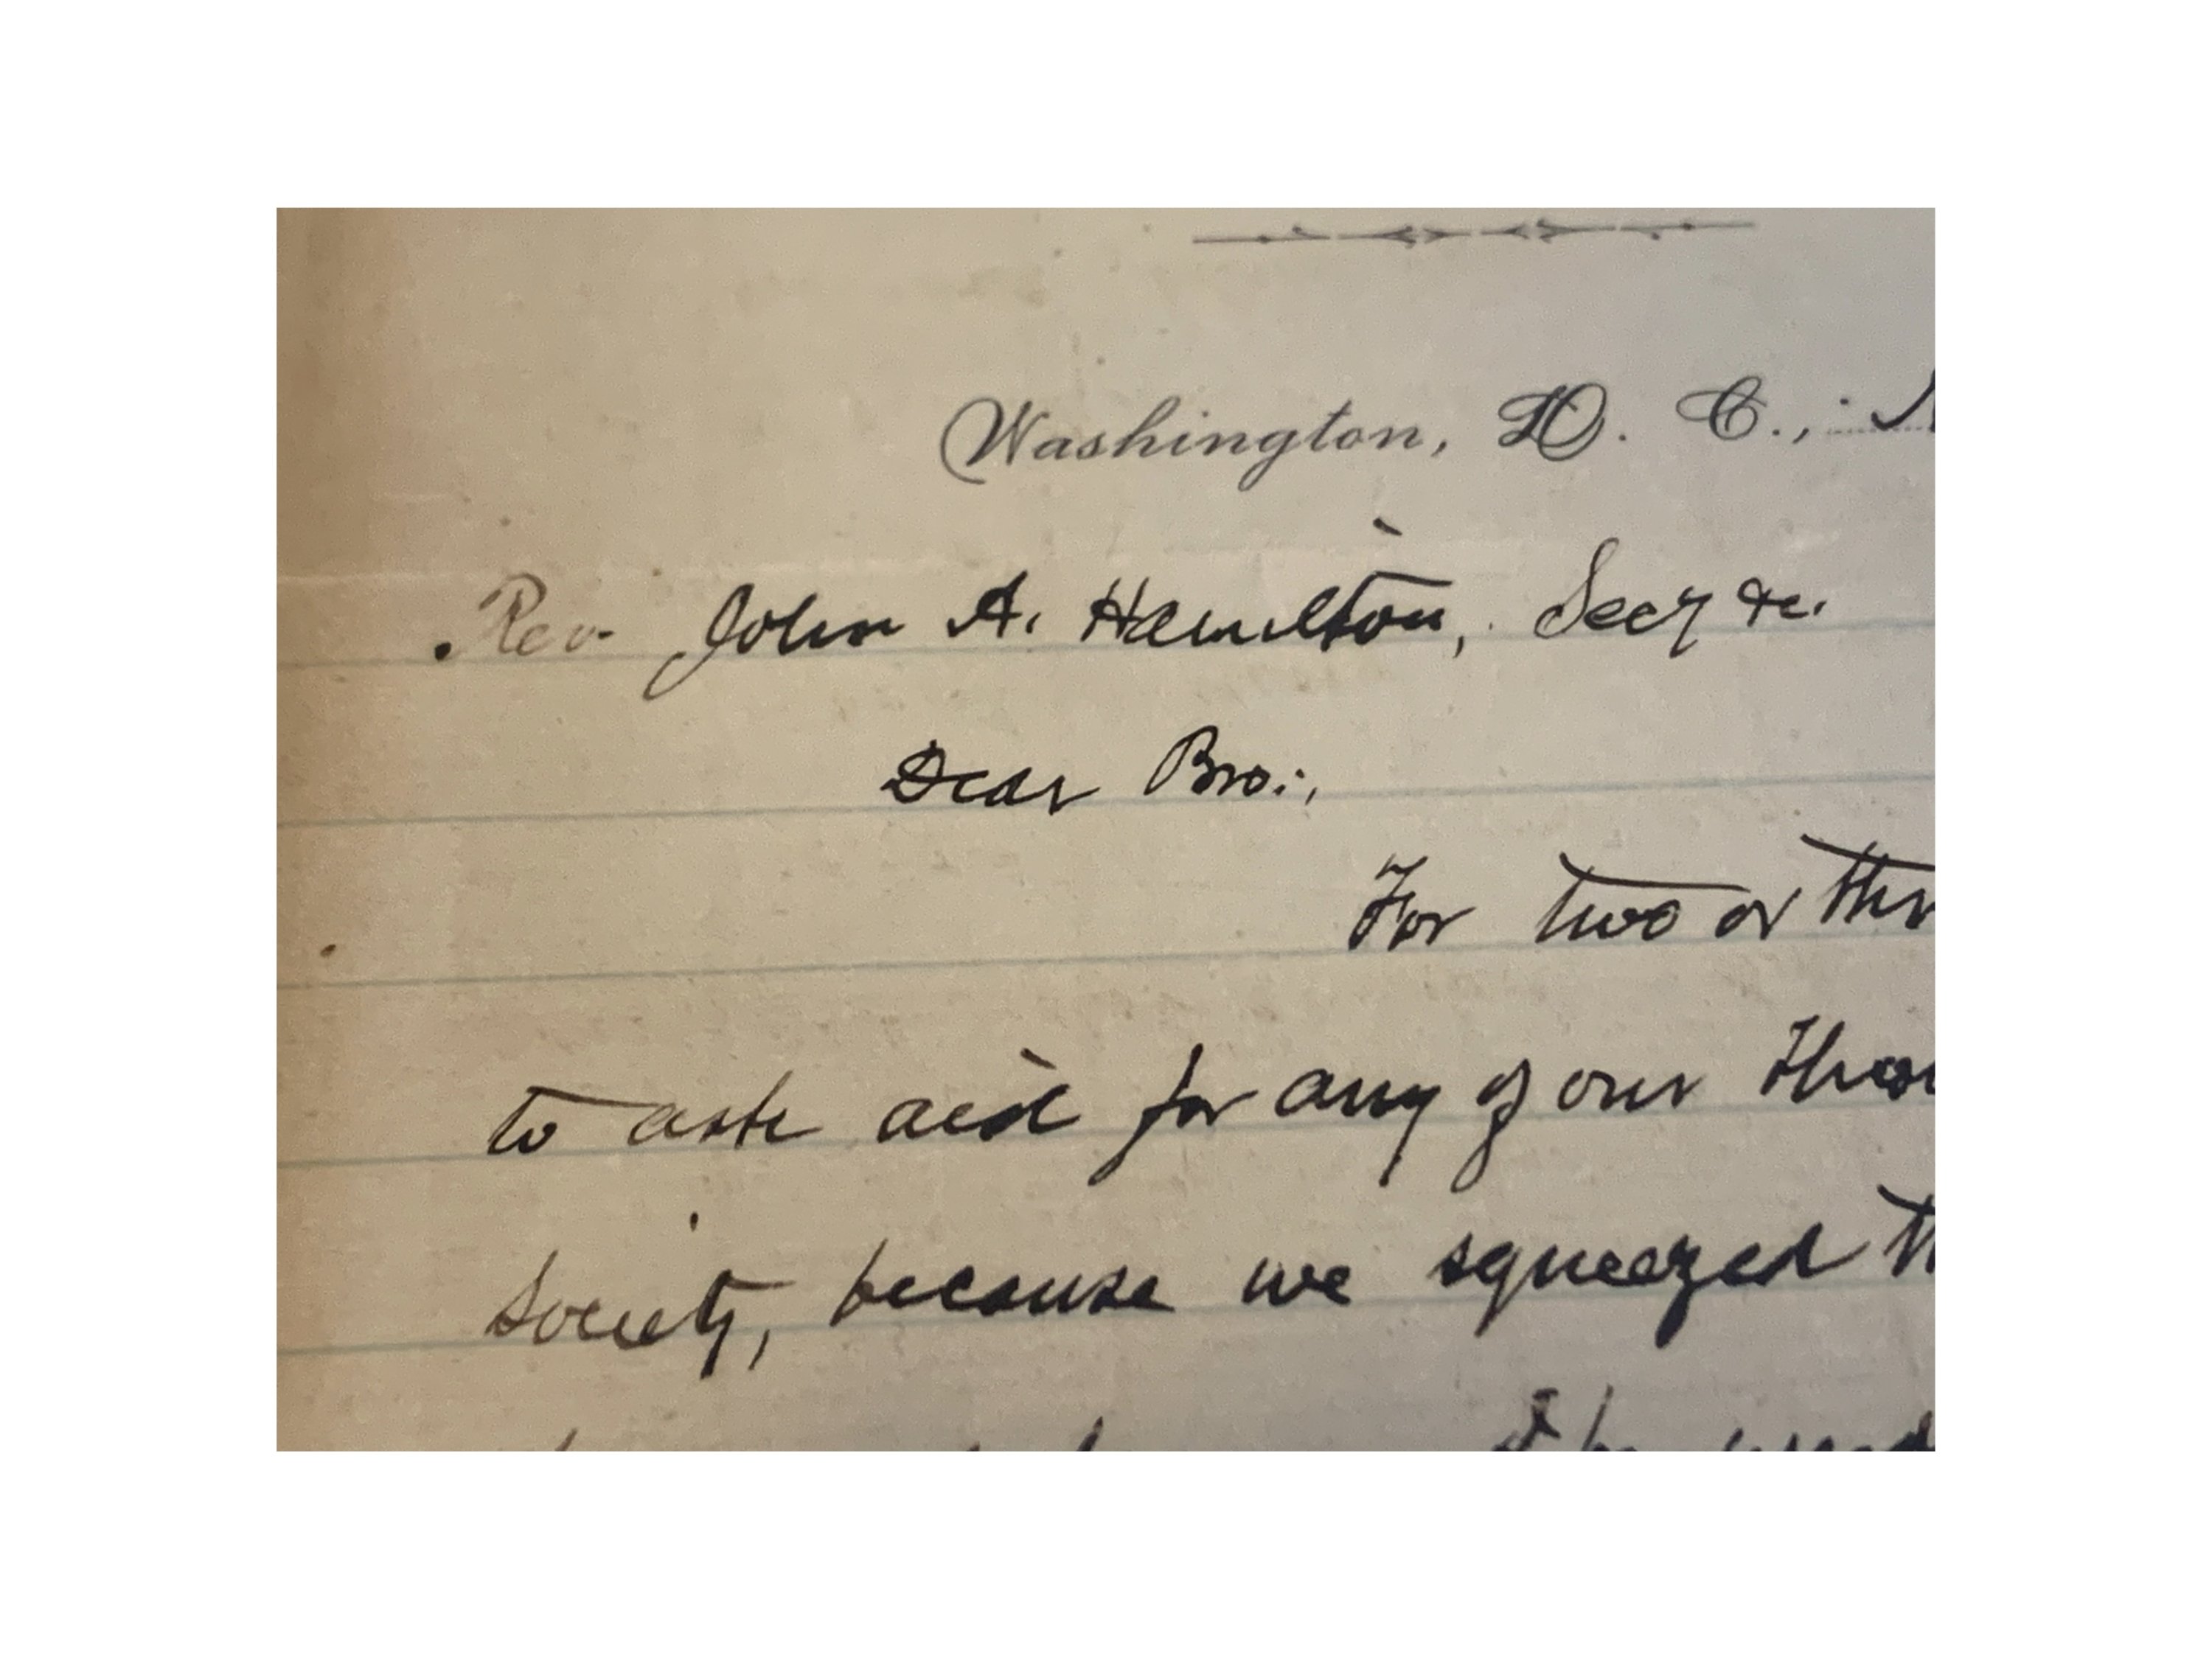 Washington, D. C.,
Rev. John A. Hamilton, Secy &c.
Dear Bro.,
For two or
to ask aid for any of our
Society, because we squeezed